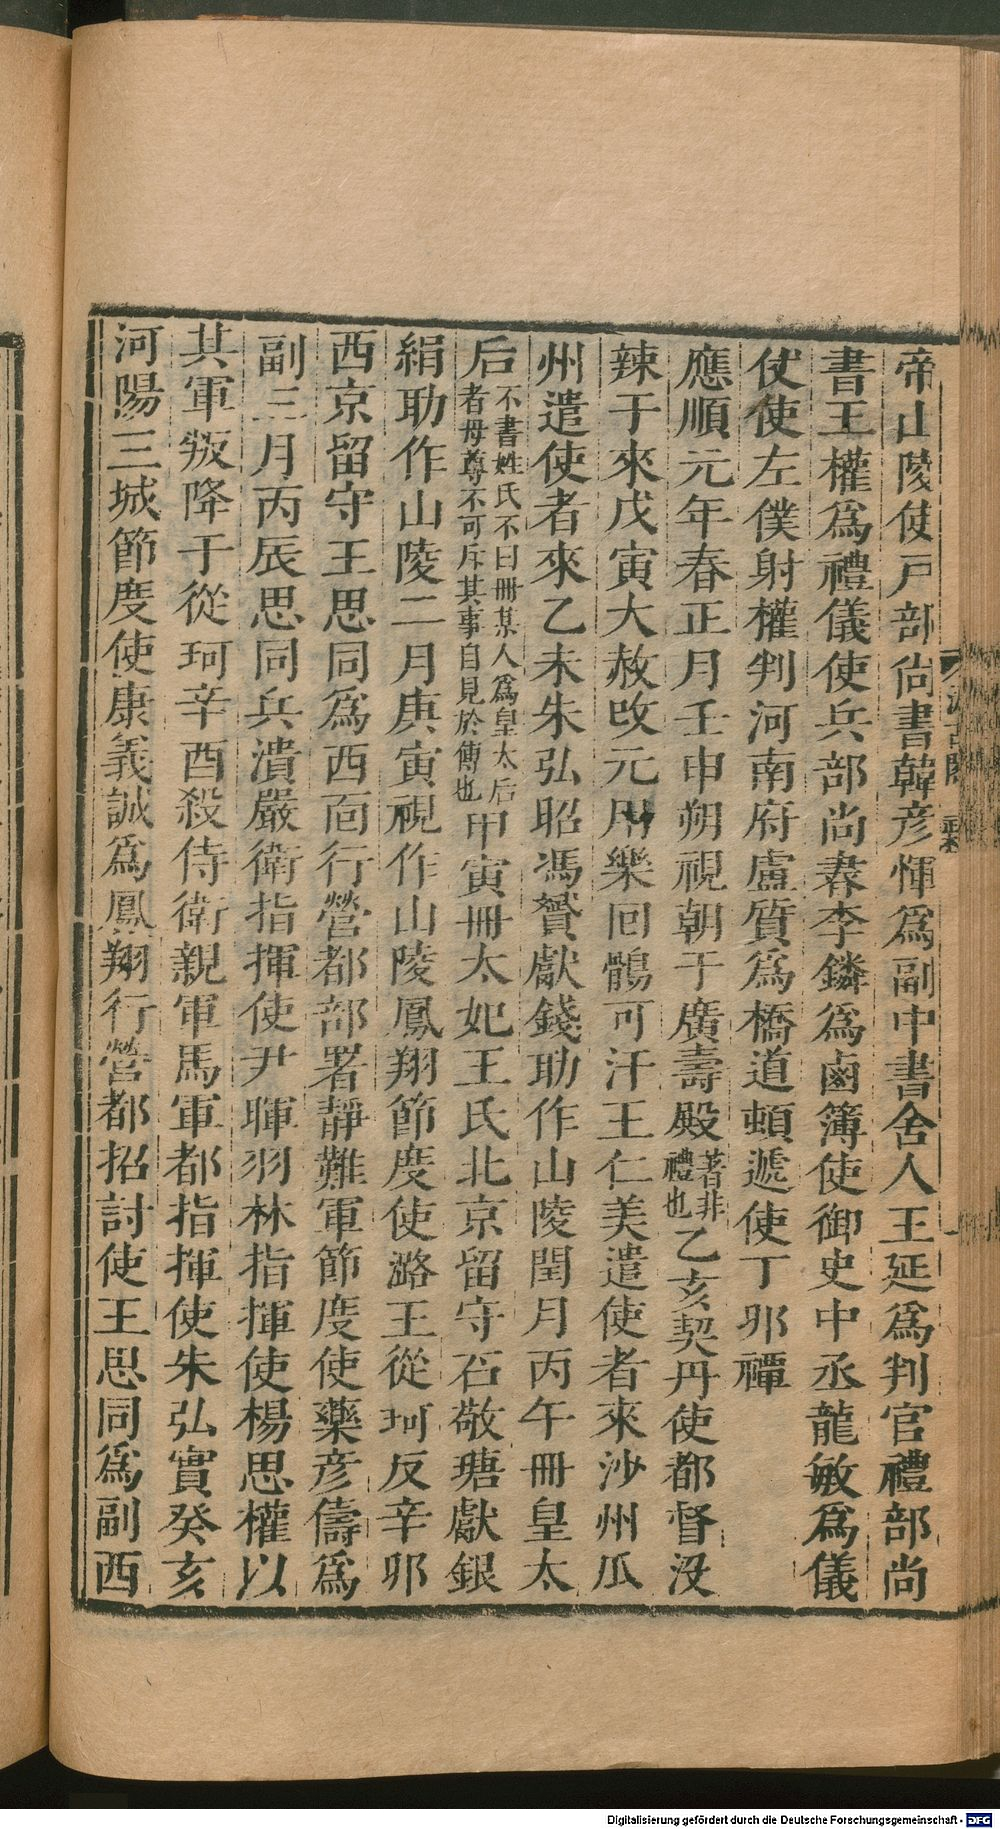 帝山陵使戸部尙書韓彥惲爲副中書舍人王延爲判官禮部尙
書王權爲禮儀使兵部尙書李鏻爲鹵簿使御史中丞龍敏爲儀
仗使左僕射權判河南府盧質爲橋道頓遞使丁邜禫
應順元年春正月壬申朔視朝于廣壽殿著非禮也乙亥契丹使都督沒
辣于來戊寅大赦改元用樂回鶻可汗王仁美遣使者來沙州瓜
州遣使者來乙未朱弘昭馮贇獻錢助作山陵閏月丙午冊皇太
后不書姓氏不曰冊某人爲皇太后者母尊不可斥其事自見於傳也甲寅冊太妃王氏北京留守石敬瑭獻銀
絹助作山陵二月庚寅視作山陵鳳翔節度使潞王從珂反辛邜
西京留守王思同爲西面行營都部署靜難軍節度使藥彥儔爲
副三月丙辰思同兵潰嚴衛指揮使尹暉羽林指揮使楊思權以
其軍叛降于從珂辛酉殺侍衛親軍馬軍都指揮使朱弘實癸亥
河陽三城節度使康義誠爲鳳翔行營都招討使王思同爲副西
Digitalisierung gefördert durch die Deutsche Forschungsgemeinschaft - DFG